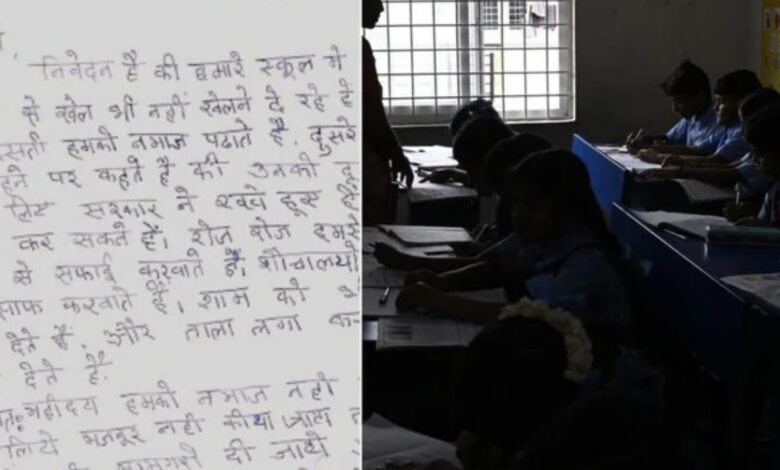 निवेदन है की हमारे स्कूल मे
से खेल भी नहीं खेलने दे रहे है
सती हमको नमाज पढाते है, दुसरे
पर कहते है की उनको
सरकार ने रखवे हुए
कर सकते हैं। रोज रोज हमसे
से सफाई करवाते है। शौचालयो
साफ करवाते है, शाम को
देते है, और ताला लगा
देते है
महोदय हमको नमाज नही
लिये मजबूर नही कीया जाए
दी जाये